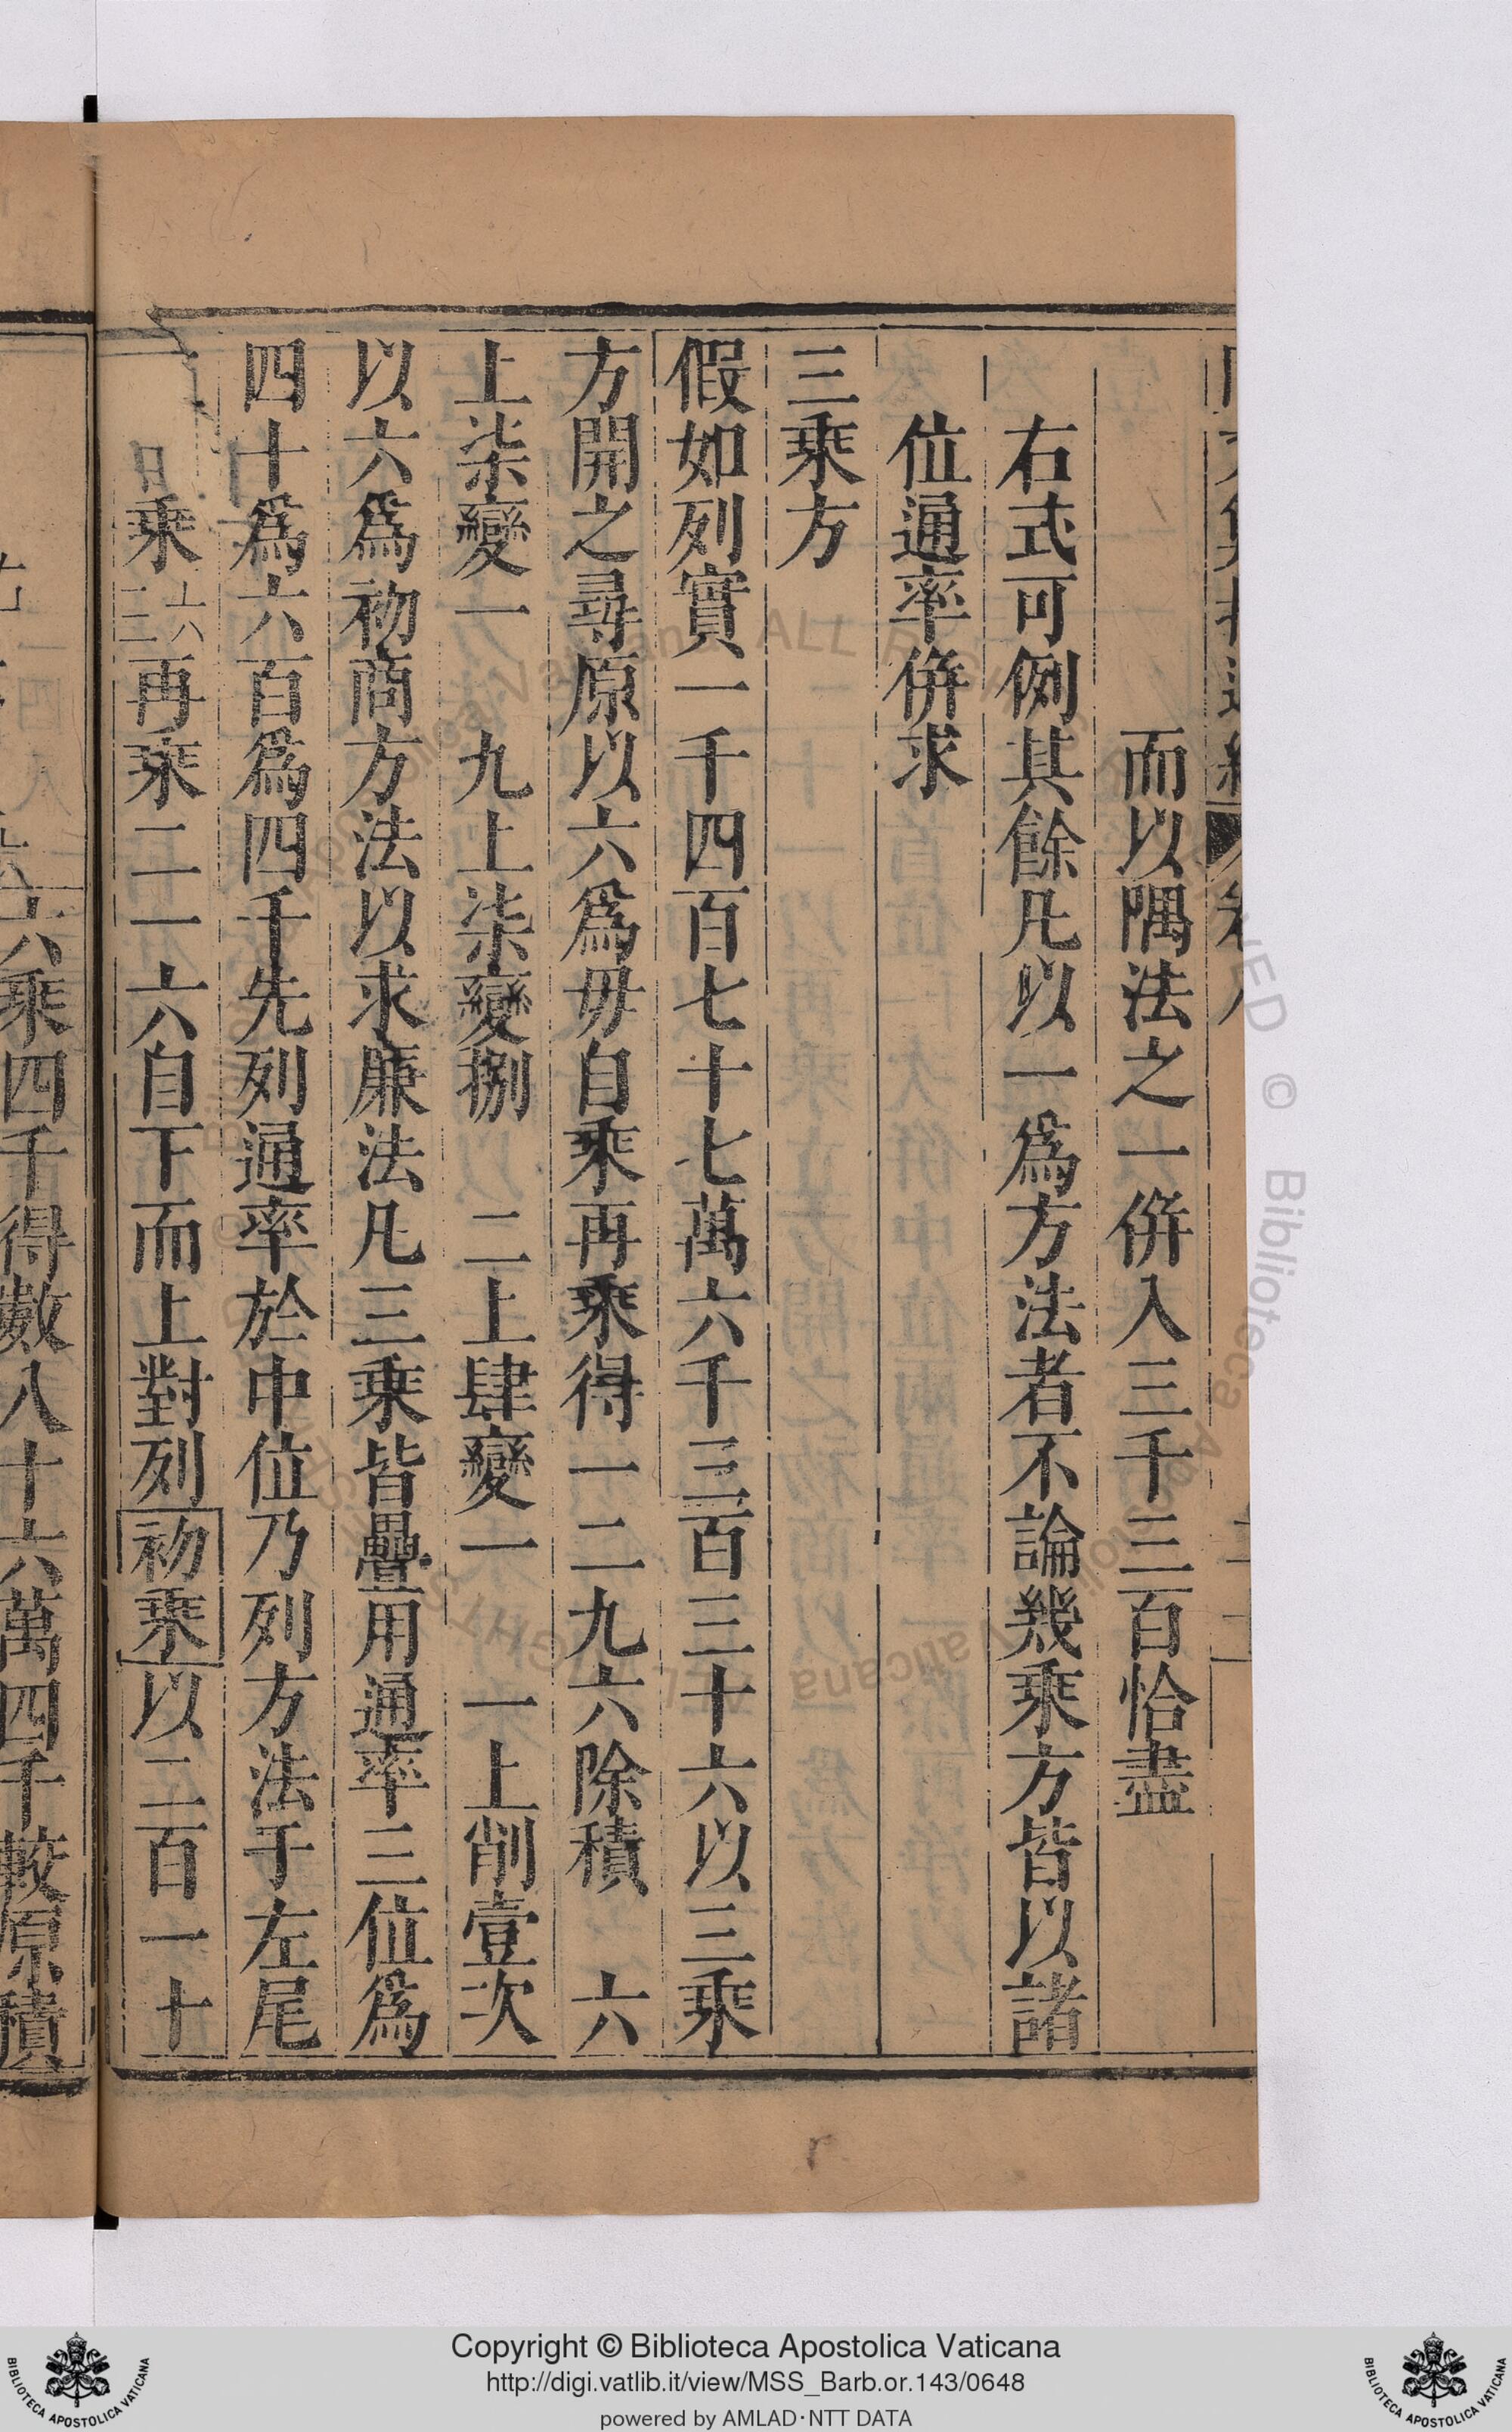 而以隅法之一併入三千三百恰盡
右式可例其餘凡以一爲方法者不論幾乘方皆以諸
位通率併求
三乘方
假如列實一千四百七十七萬六千三百三十六以三乘
方開之尋原以六爲毋自乘再乘得一二九六除積 六
上柒變一 九上柒變捌 二上肆變一 一上削壹次
以六爲初商方法以求廉法凡三乘皆疊用通率三位爲
四十爲六百爲四千先列通率於中位乃列方法于左尾
乘 六六 三 再乘二一六自下而上對列初乘以二百一十
六乘四千得數八十六萬四千較原積
Copyright © Biblioteca Apostolica Vaticana
http://digi.vatlib.it/view/MSS_Barb.or.143/0648
powered by AMLAD·NTT DATA
BIBLIOTECA APOSTOLICA VATICANA
BIBLIOTECA APOSTOLICA VATICANA